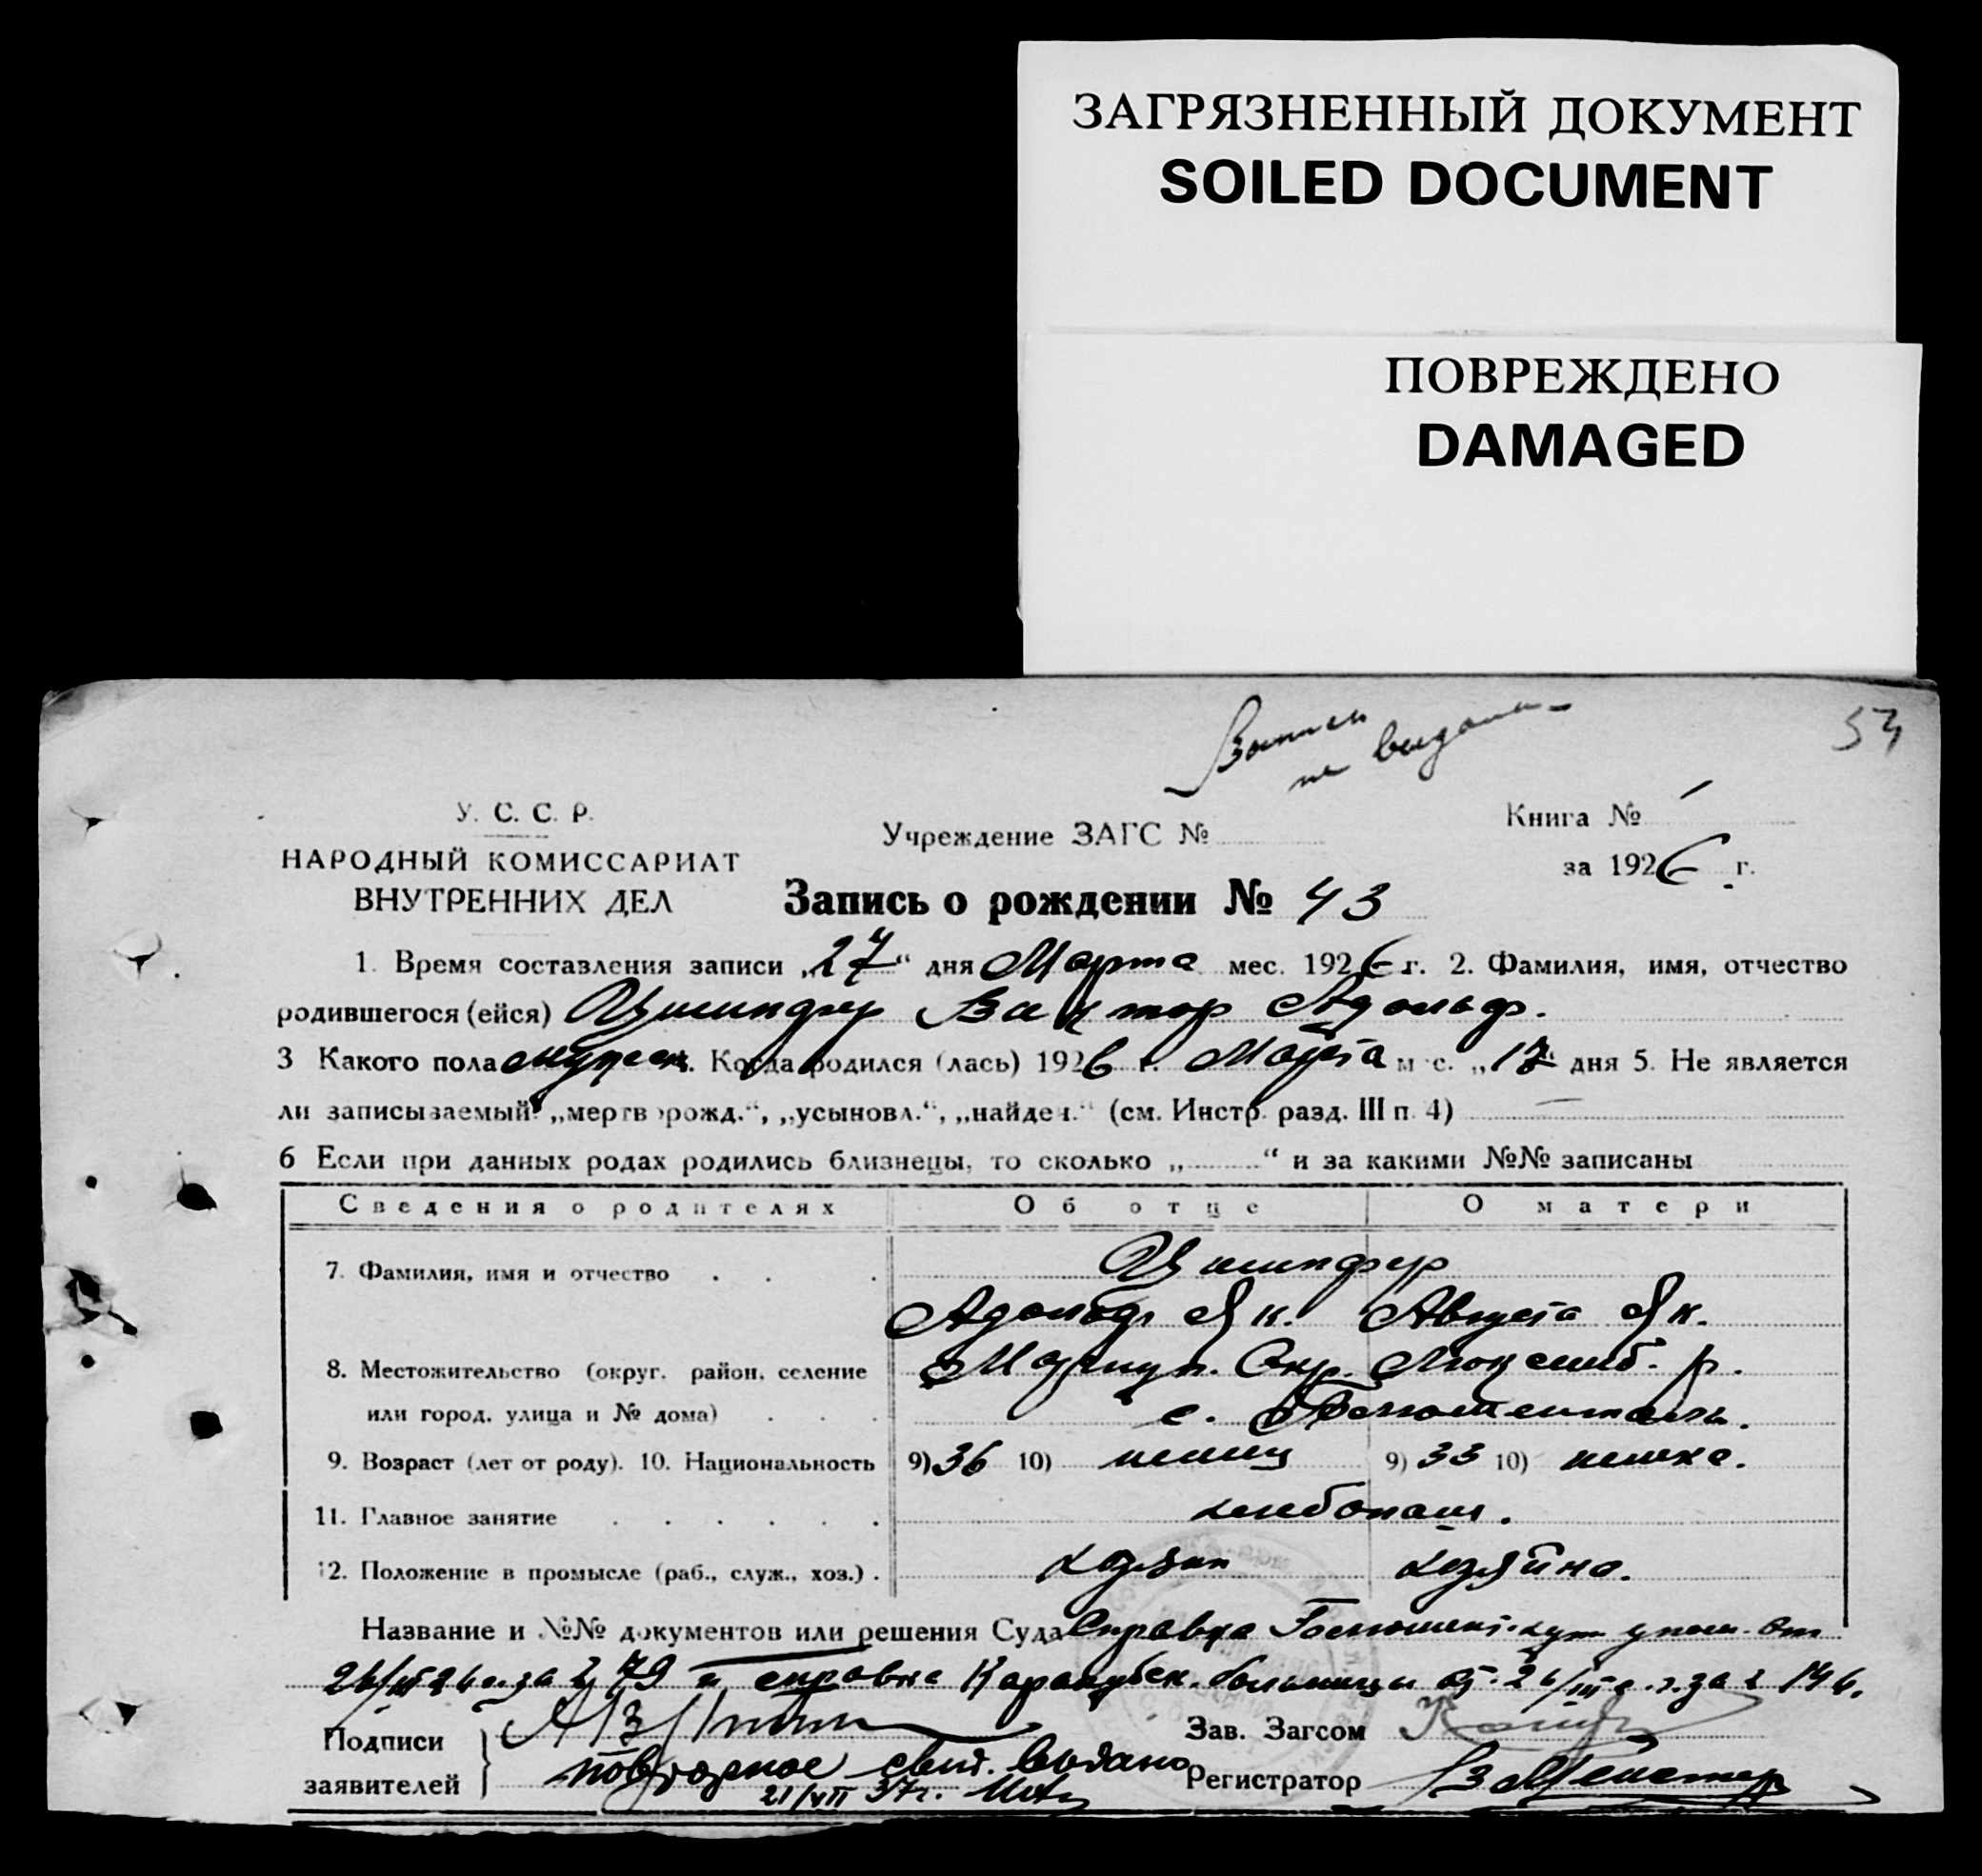 ЗАГРЯЗНЕННЫЙ ДОКУМЕНТ
SOILED DOCUMENT
ПОВРЕЖДЕНО
DAMAGED
не выдана
У. С. С. Р.
НАРОДНЫЙ КОМИССАРИАТ
ВНУТРЕННИХ ДЕЛ
Учреждение ЗАГС №
Книга № 1
за 1926 г.
Запись о рождении № 43
1. Время составления записи „27“ дня Марта мес. 1926 г. 2. Фамилия, имя, отчество
родившегося (ейся) Виктор Адольф.
3 Какого пола мужск. Когда родился (лась) 1926 г. Марта мес. „17“ дня 5. Не является
ли записываемый: „мертворожд.“, „усыновл.“, „найден.“ (см. Инстр. разд. III п. 4) —
6 Если при данных родах родились близнецы, то сколько „ “ и за какими №№ записаны
Сведения о родителях Об отце О матери
7. Фамилия, имя и отчество
Адольф Як. Августа Як.
8. Местожительство (округ, район, селение Мариуп. Окр. Люксемб. р.
или город, улица и № дома) с.
9. Возраст (лет от роду). 10. Национальность 9) 36 10) немец 9) 33 10) немка.
11. Главное занятие хлебопаш.
12. Положение в промысле (раб., служ., хоз.) хозяин хозяйка.
Название и №№ документов или решения Суда Справка от
26/III 26 г. за № 79 и справка больницы от 26/III с. г. за № 146.
Подписи
заявителей
Зав. Загсом
повторное свид. выдано
21/VII 37 г.
Регистратор